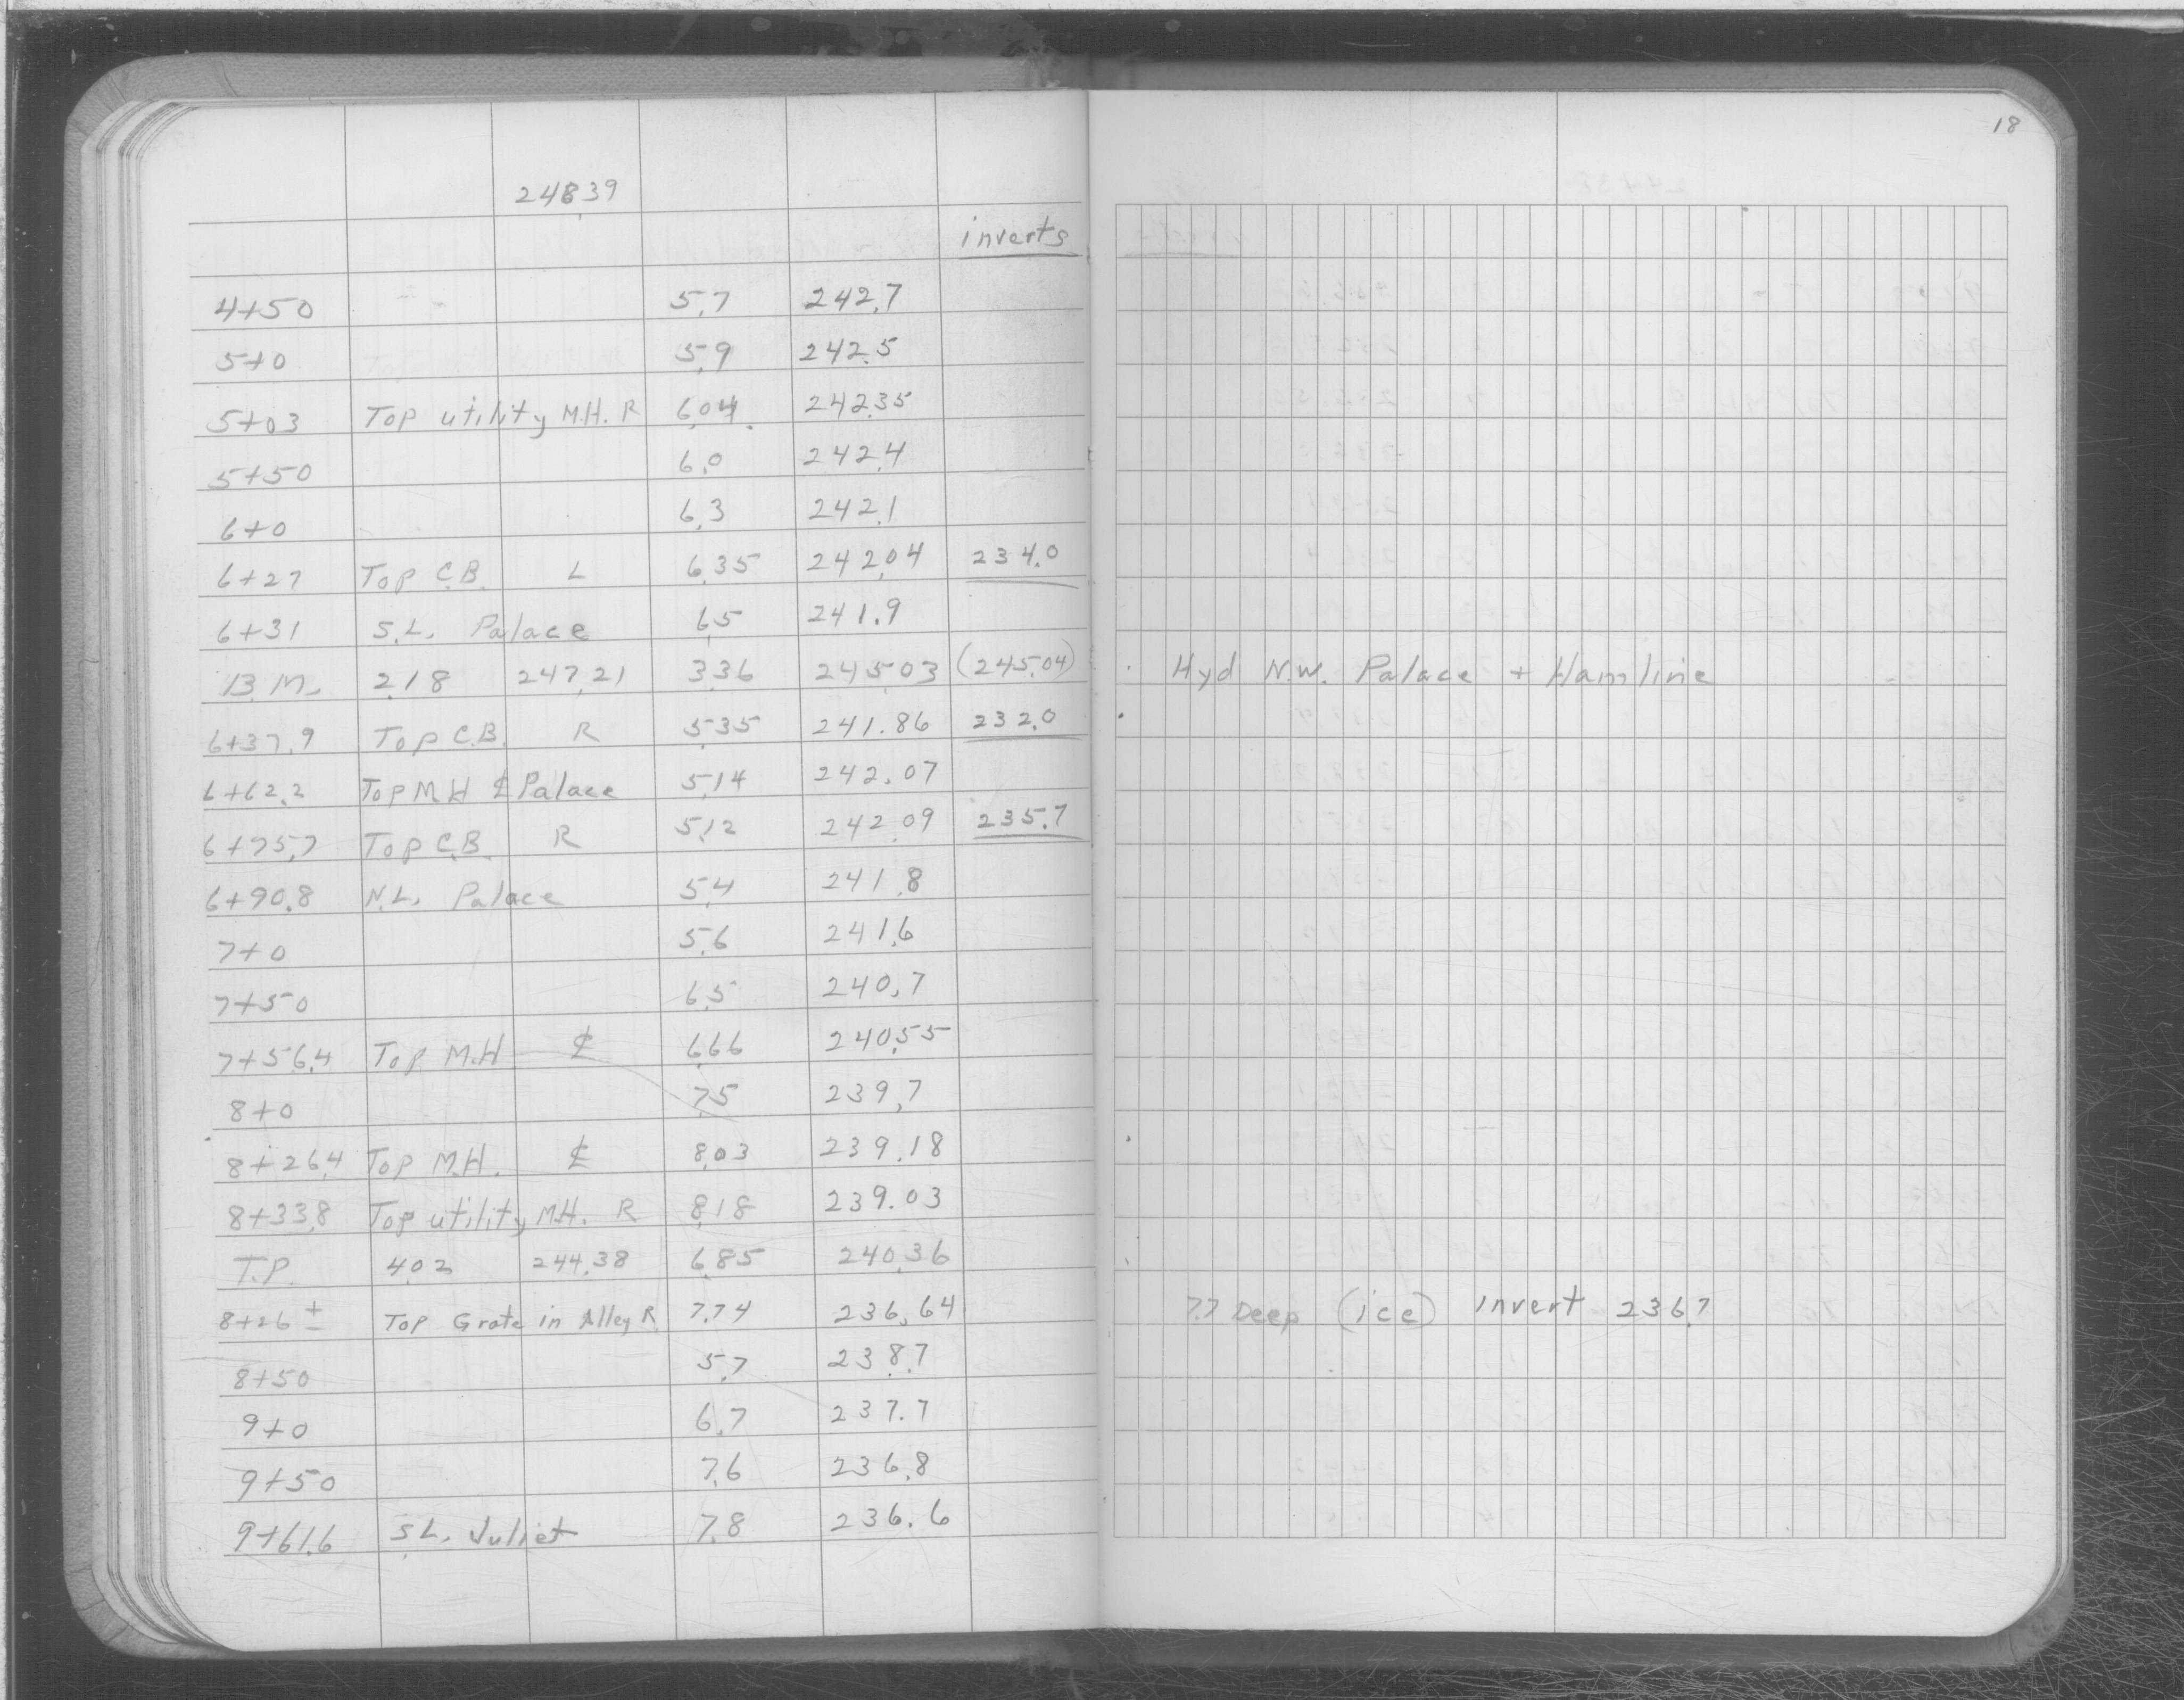 18
248.39
inverts
4+50 5.7 242.7
5+0 5.9 242.5
5+03 Top utility M.H. R 6.04 242.35
5+50 6.0 242.4
6+0 6.3 242.1
6+27 Top C.B. L 6.35 242.04 234.0
6+31 S.L. Palace 6.5 241.9
B.M. 2.18 247.21 3.36 245.03 (245.04) Hyd N.W. Palace + Hamline
6+37.9 Top C.B. R 5.35 241.86 232.0
6+62.2 Top M H ℄ Palace 5.14 242.07
6+75.7 Top C.B. R 5.12 242.09 235.7
6+90.8 N.L. Palace 5.4 241.8
7+0 5.6 241.6
7+50 6.5 240.7
7+56.4 Top M.H ℄ 6.66 240.55
8+0 7.5 239.7
8+26.4 Top M.H. ℄ 8.03 239.18
8+33.8 Top utility M.H. R 8.18 239.03
T.P. 4.02 244.38 6.85 240.36
8+26 ± Top Grate in Alley R 7.74 236.64 7.7 Deep (ice) invert 236.7
8+50 5.7 238.7
9+0 6.7 237.7
9+50 7.6 236.8
9+61.6 S.L. Juliet 7.8 236.6